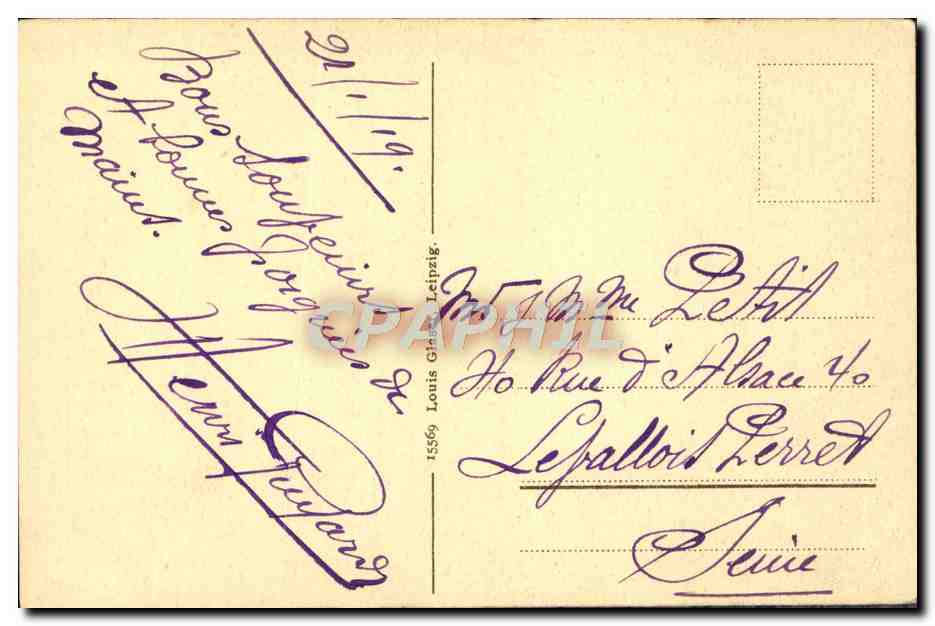 21/1/19.
Bons Souvenirs
et bonnes poignées de
mains.
Henri
15569 Louis Glaser, Leipzig.
Mr & Mme Petit
40 Rue d'Alsace 40
Levallois Perret
Seine
CPAPHIL